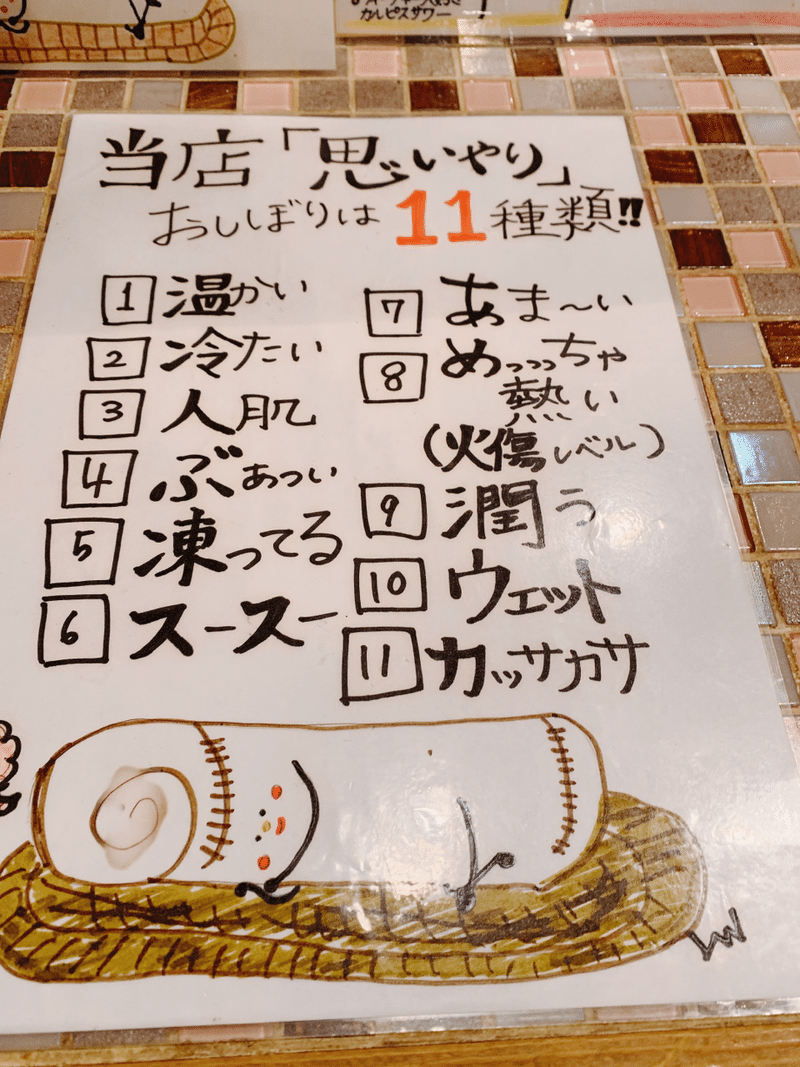 カルピスサワー
当店「思いやり」
おしぼりは 11種類!!
1 温かい
2 冷たい
3 人肌
4 ぶあつい
5 凍ってる
6 スースー
7 あま〜い
8 めっっっちゃ
熱い
(火傷レベル)
9 潤う
10 ウェット
11 カッサカサ